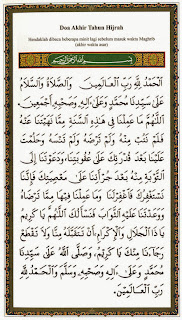 Doa Akhir Tahun Hijrah
Hendaklah dibaca beberapa minit lagi sebelum masuk waktu Maghrib
(akhir waktu asar)
بِسْمِ اللهِ الرَّحْمٰنِ الرَّحِيْمِ
اَلْحَمْدُ لِلَّهِ رَبِّ الْعَالَمِيْنَ وَالصَّلَاةُ وَالسَّلَامُ
عَلَى سَيِّدِنَا مُحَمَّدٍ وَعَلَى آلِهِ وَصَحْبِهِ أَجْمَعِيْنَ.
اَللَّهُمَّ مَا عَمِلْنَا فِي هَذِهِ السَّنَةِ مِمَّا نَهَيْتَنَا عَنْهُ
فَلَمْ نَتُبْ مِنْهُ وَلَمْ تَرْضَهُ وَلَمْ تَنْسَهُ وَحَلُمْتَ
عَلَيْنَا بَعْدَ قُدْرَتِكَ عَلَى عُقُوْبَتِنَا وَدَعَوْتَنَا إِلَى
التَّوْبَةِ مِنْهُ بَعْدَ جُرْأَتِنَا عَلَى مَعْصِيَتِكَ فَإِنَّا
نَسْتَغْفِرُكَ فَاغْفِرْ لَنَا وَمَا عَمِلْنَا فِيْهَا مِمَّا تَرْضَاهُ
وَوَعَدْتَنَا عَلَيْهِ الثَّوَابَ فَنَسْأَلُكَ اللَّهُمَّ يَا كَرِيْمُ
يَا ذَا الْجَلَالِ وَالْإِكْرَامِ أَنْ تَتَقَبَّلَهُ مِنَّا وَلَا تَقْطَعْ
رَجَاءَنَا مِنْكَ يَا كَرِيْمُ، وَصَلَّى اللهُ عَلَى سَيِّدِنَا
مُحَمَّدٍ وَعَلَى آلِهِ وَصَحْبِهِ وَسَلَّمَ وَالْحَمْدُ لِلَّهِ
رَبِّ الْعَالَمِيْنَ.